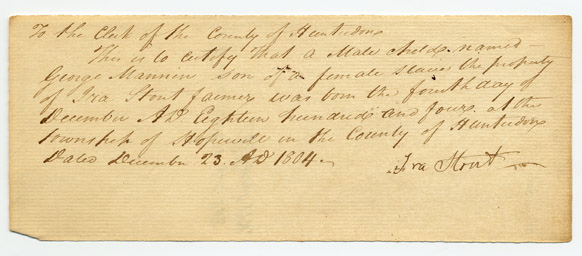 To the Clerk of the County of Hunterdon
This is to certify that a Male child named
George Mannin Son of a female slave the property
of Ira Stout farmer was born the fourth day of
December AD Eighteen hundred and four at the
township of Hopewell in the County of Hunterdon
Dated December 23. AD 1804
Ira Stout